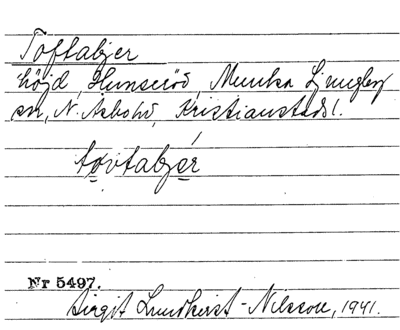 Toftabjer
höjd, Hunseröd, Munka Ljungby
sn, N. Åsbohd, Kristianstads l.
tovtabjér
Nr 5497.
Birgit Lundkvist-Nilsson, 1941.